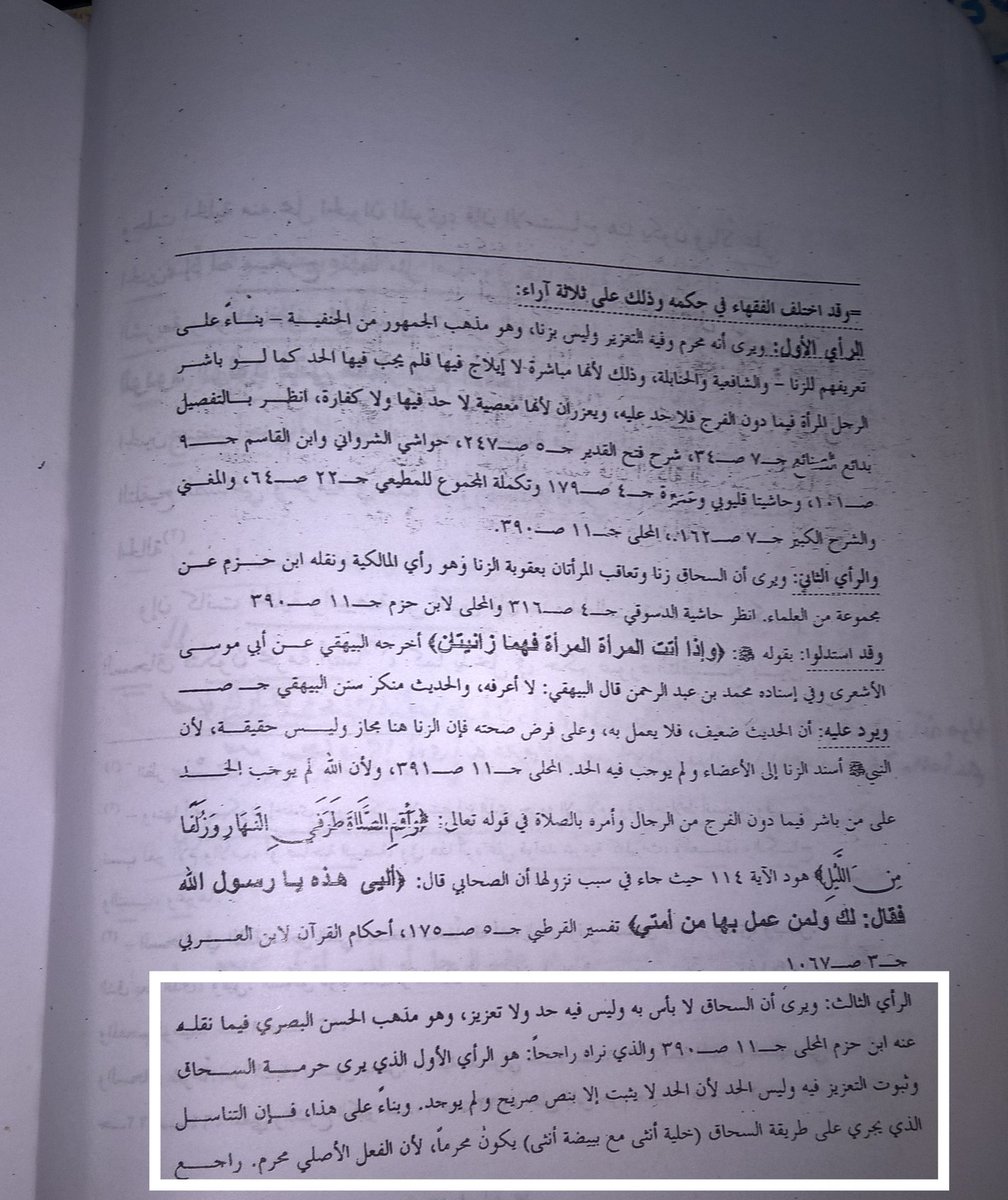 =وقد اختلف الفقهاء في حكمه وذلك على ثلاثة آراء:
الرأي الأول: ويرى أنه محرم وفيه التعزير وليس بزنا، وهو مذهب الجمهور من الحنفية – بناءً على
تعريفهم للزنا – والشافعية والحنابلة، وذلك لأنها مباشرة لا إيلاج فيها فلم يجب فيها الحد كما لو باشر
الرجل المرأة فيما دون الفرج فلا حد عليه، ويعزران لأنها معصية لا حد فيها ولا كفارة، انظر بالتفصيل
بدائع الصنائع جـ٧ صـ٣٤، شرح فتح القدير جـ٥ صـ٢٤٧، حواشي الشرواني وابن القاسم جـ٩
صـ١٠١، وحاشيتا قليوبي وعميرة جـ٤ صـ١٧٩ وتكملة المجموع للمطيعي جـ٢٢ صـ٦٤، والمغني
والشرح الكبير جـ٧ صـ١٦٢.، المحلى جـ١١ صـ٣٩٠.
والرأي الثاني: ويرى أن السحاق زنا وتعاقب المرأتان بعقوبة الزنا وهو رأي المالكية ونقله ابن حزم عن
مجموعة من العلماء. انظر حاشية الدسوقي جـ٤ صـ٣١٦ والمحلى لابن حزم جـ١١ صـ٣٩٠
وقد استدلوا: بقوله ﷺ: ﴿وإذا أتت المرأة المرأة فهما زانيتان﴾ أخرجه البيهقي عن أبي موسى
الأشعرى وفي إسناده محمد بن عبد الرحمن قال البيهقي: لا أعرفه، والحديث منكر سنن البيهقي جـ صـ
ويرد عليه: أن الحديث ضعيف، فلا يعمل به، وعلى فرض صحته فإن الزنا هنا مجاز وليس حقيقة، لأن
النبي ﷺ أسند الزنا إلى الأعضاء ولم يوجب فيه الحد. المحلى جـ١١ صـ٣٩١، ولأن الله لم يوجب الحد
على من باشر فيما دون الفرج من الرجال وأمره بالصلاة في قوله تعالى: ﴿وَأَقِمِ الصَّلَاةَ طَرَفَيِ النَّهَارِ وَزُلَفًا
مِنَ اللَّيْلِ﴾ هود الآية ١١٤ حيث جاء في سبب نزولها أن الصحابي قال: ﴿ألبي هذه يا رسول الله
فقال: لك ولمن عمل بها من أمتي﴾ تفسير القرطبي جـ٥ صـ١٧٥، أحكام القرآن لابن العربي
جـ٣ صـ١٠٦٧
الرأي الثالث: ويرى أن السحاق لا بأس به وليس فيه حد ولا تعزيز، وهو مذهب الحسن البصري فيما نقله
عنه ابن حزم المحلى جـ١١ صـ٣٩٠ والذي نراه راجحاً: هو الرأي الأول الذي يرى حرمة السحاق
وثبوت التعزير فيه وليس الحد لأن الحد لا يثبت إلا بنص صريح ولم يوجد. وبناءً على هذا، فإن التناسل
الذي يجري على طريقة السحاق (خلية أنثى مع بييضة أنثى) يكون محرماً، لأن الفعل الأصلي محرم. راجع